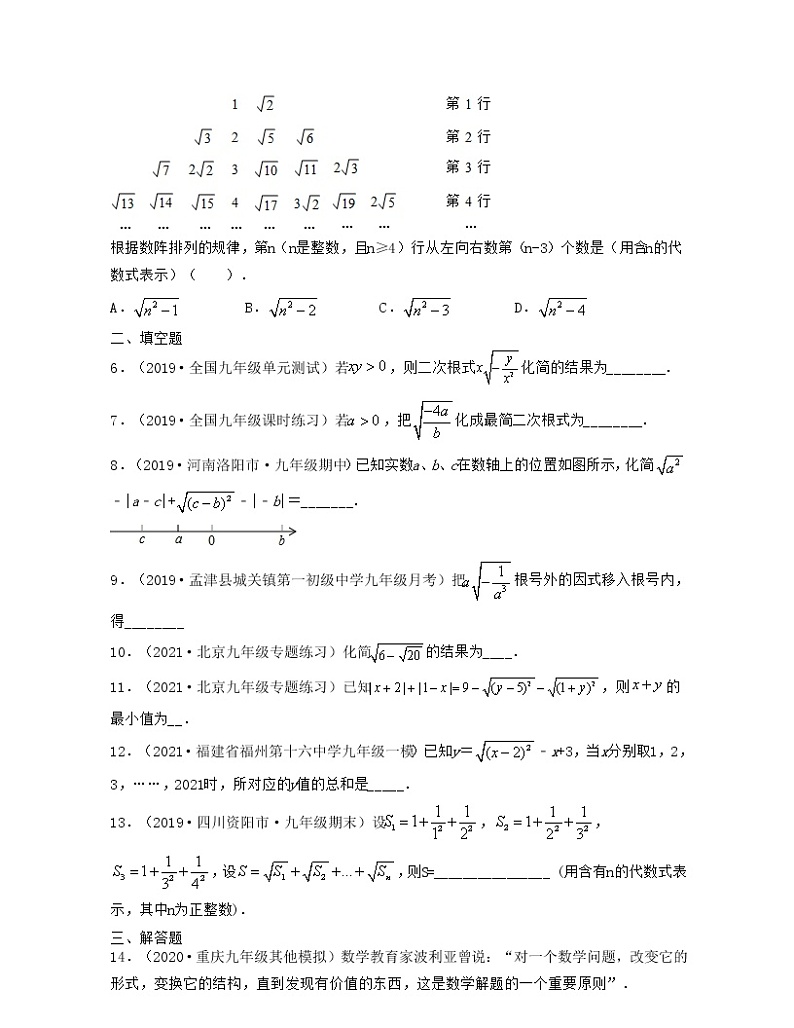 1 √2 第 1 行
√3 2 √5 √6 第 2 行
√7 2√2 3 √10 √11 2√3 第 3 行
√13 √14 √15 4 √17 3√2 √19 2√5 第 4 行
… … … … … … … … …
根据数阵排列的规律,第n(n是整数,且n≥4)行从左向右数第(n-3)个数是(用含n的代
数式表示)( ).
A.√(n²-1) B.√(n²-2) C.√(n²-3) D.√(n²-4)
二、填空题
6.(2019·全国九年级单元测试)若xy>0,则二次根式x√(-y/x²)化简的结果为________.
7.(2019·全国九年级课时练习)若a>0,把√(-4a/b)化成最简二次根式为________.
8.(2019·河南洛阳市·九年级期中)已知实数a、b、c在数轴上的位置如图所示,化简√a²
﹣|a﹣c|+√(c-b)²﹣|﹣b|=_______.
c a 0 b
9.(2019·孟津县城关镇第一初级中学九年级月考)把a√(-1/a³)根号外的因式移入根号内,
得________
10.(2021·北京九年级专题练习)化简√(6-√20)的结果为____.
11.(2021·北京九年级专题练习)已知|x+2|+|1-x|=9-√(y-5)²-√(1+y)²,则x+y的
最小值为__.
12.(2021·福建省福州第十六中学九年级一模)已知y=√(x-2)²﹣x+3,当x分别取1,2,
3,……,2021时,所对应的y值的总和是_____.
13.(2019·四川资阳市·九年级期末)设S₁=1+1/1²+1/2²,S₂=1+1/2²+1/3²,
S₃=1+1/3²+1/4²,设S=√S₁+√S₂+...+√Sₙ,则S=________________ (用含有n的代数式表
示,其中n为正整数).
三、解答题
14.(2020·重庆九年级其他模拟)数学教育家波利亚曾说:“对一个数学问题,改变它的
形式,变换它的结构,直到发现有价值的东西,这是数学解题的一个重要原则”.